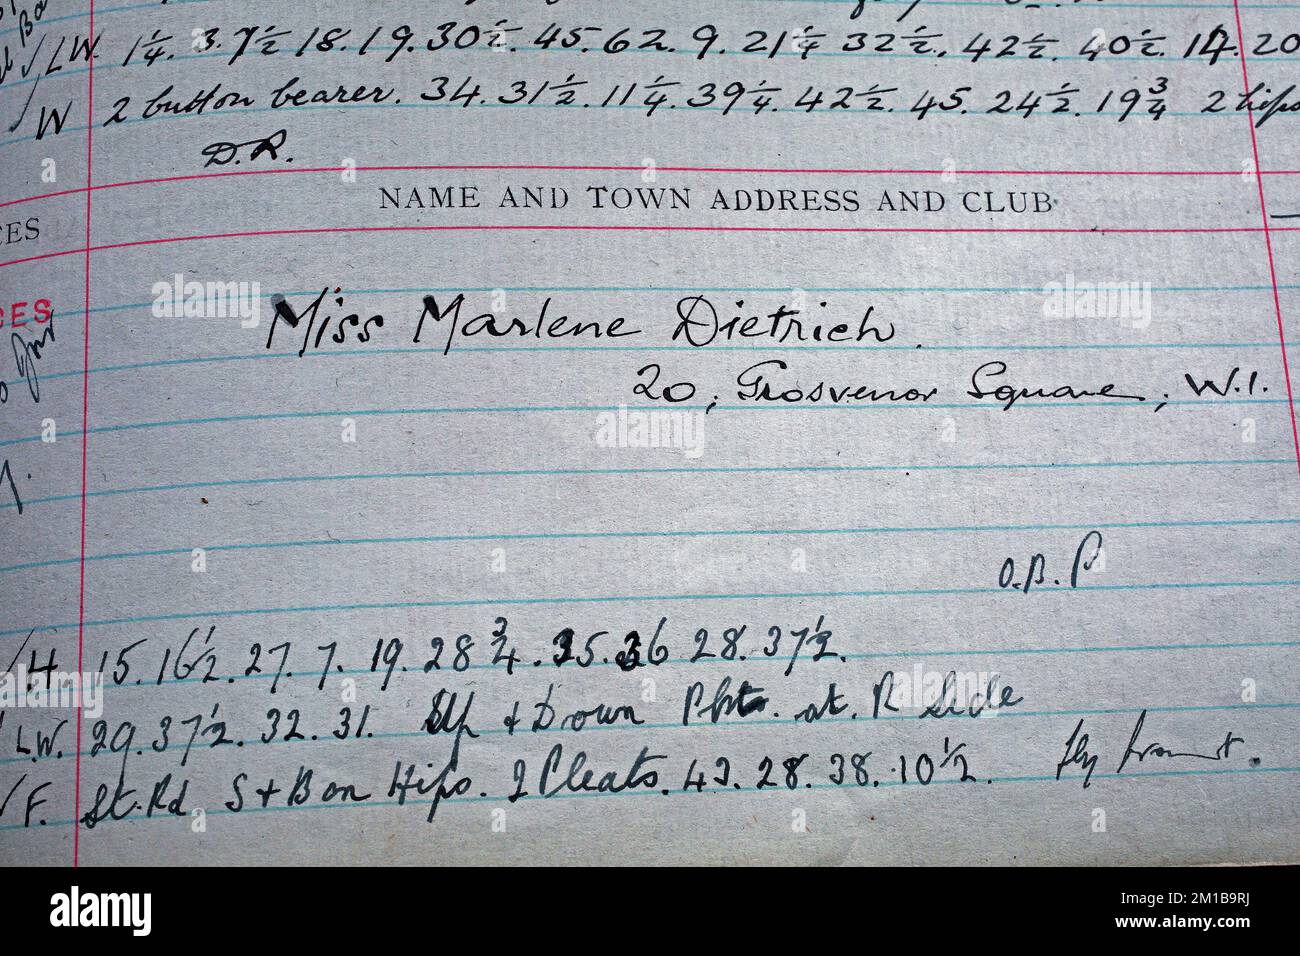 /LW. 1¼. 3. 7½ 18. 19. 30½. 45. 62. 9. 21¼ 32½. 42½. 40½. 14. 20
/W 2 button bearer. 34. 31½. 11¼. 39¼. 42½. 45. 24½. 19¾ 2 hips
D.R.
NAME AND TOWN ADDRESS AND CLUB
CES
CES
Miss Marlene Dietrich.
20, Grosvenor Square, W.1.
O.B.P
/H. 15. 16½. 27. 7. 19. 28¾. 35. 36 28. 37½.
L.W. 29. 37½. 32. 31. Up & Down Pkts. at. R Side
/F. St. Rd S & B on Hips. 2 Pleats. 43. 28. 38. 10½. fly front.
alamy
Image ID: 2M1B9RJ
www.alamy.com